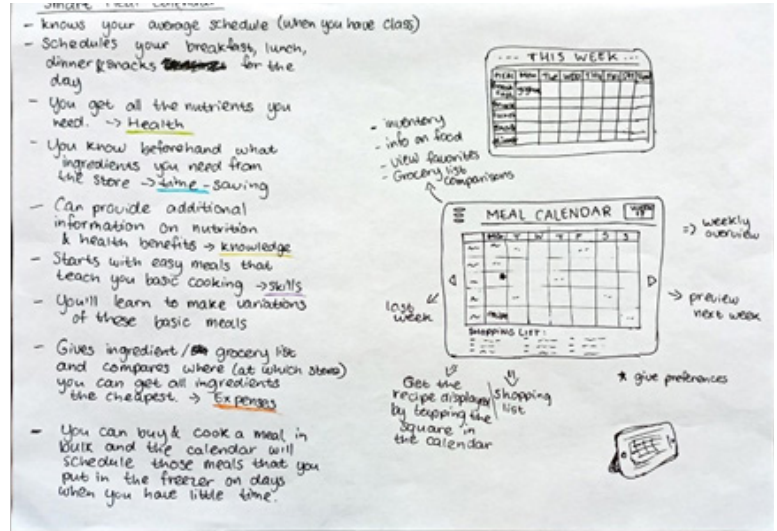 Smart Meal Calendar
- knows your average schedule (when you have class)
- Schedules your breakfast, lunch,
dinner & snacks for the
day
- You get all the nutrients you
need. -> Health
- You know beforehand what
ingredients you need from
the store -> time-saving
- Can provide additional
information on nutrition
& health benefits -> knowledge
- Starts with easy meals that
teach you basic cooking -> skills
- You'll learn to make variations
of these basic meals
- Gives ingredient/ grocery list
and compares where (at which store)
you can get all ingredients
the cheapest. -> Expenses
- You can buy & cook a meal in
bulk and the calendar will
schedule those meals that you
put in the freezer on days
when you have little time.
--- THIS WEEK ---
MEAL Mon Tue WED Thu Fri
Snack
Lunch
Snack
- inventory
- info on food
- View favorites
- Grocery list
comparisons
MEAL CALENDAR
T W T F S S
SHOPPING LIST:
=> weekly
overview
last
week
-> preview
next week
Get the
recipe displayed
by tapping the
square in
the calendar
Shopping
list
* give preferences